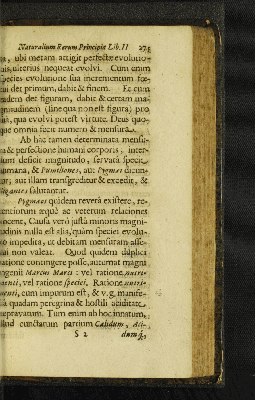 Naturalium Rerum Principiis Lib. II 275
ubi metam attigit perfectæ evolutio-
nis, ulterius nequeat evolvi. Cum enim
species evolutione sua incrementum fœ-
tui det primum, dabit & finem. Et cum
eadem det figuram, dabit & certam ma-
gnitudinem (sine qua non est figura) pro
qua evolvi potest virtute. Deus quo-
que omnia fecit numero & mensura.
Ab hac tamen determinata mensu-
ra & perfectione humani corporis, inter-
dum deficit magnitudo, servata specie
humana, & Pumiliones, aut Pygmæi dicun-
tur; aut illam transgreditur & excedit, &
Gigantes salutantur.
Pygmæos quidem revera existere, re-
centiorum æquè ac veterum relationes
docent, Causa verò justâ minoris magni-
tudinis nulla est alia, quàm speciei evolu-
tio impedita, ut debitam mensuram asse-
qui non valeat. Quod quidem duplici
ratione contingere posse, autumat magni
ingenii Marcus Marci: vel ratione nutri-
menti, vel ratione speciei. Ratione nutri-
menti, cum impurum est, & v.g. manife-
sta quadam peregrina & hostili aciditate
depravatum. Tum enim ab hoc innatum,
illud cunctarum partium Calidum,
S 2